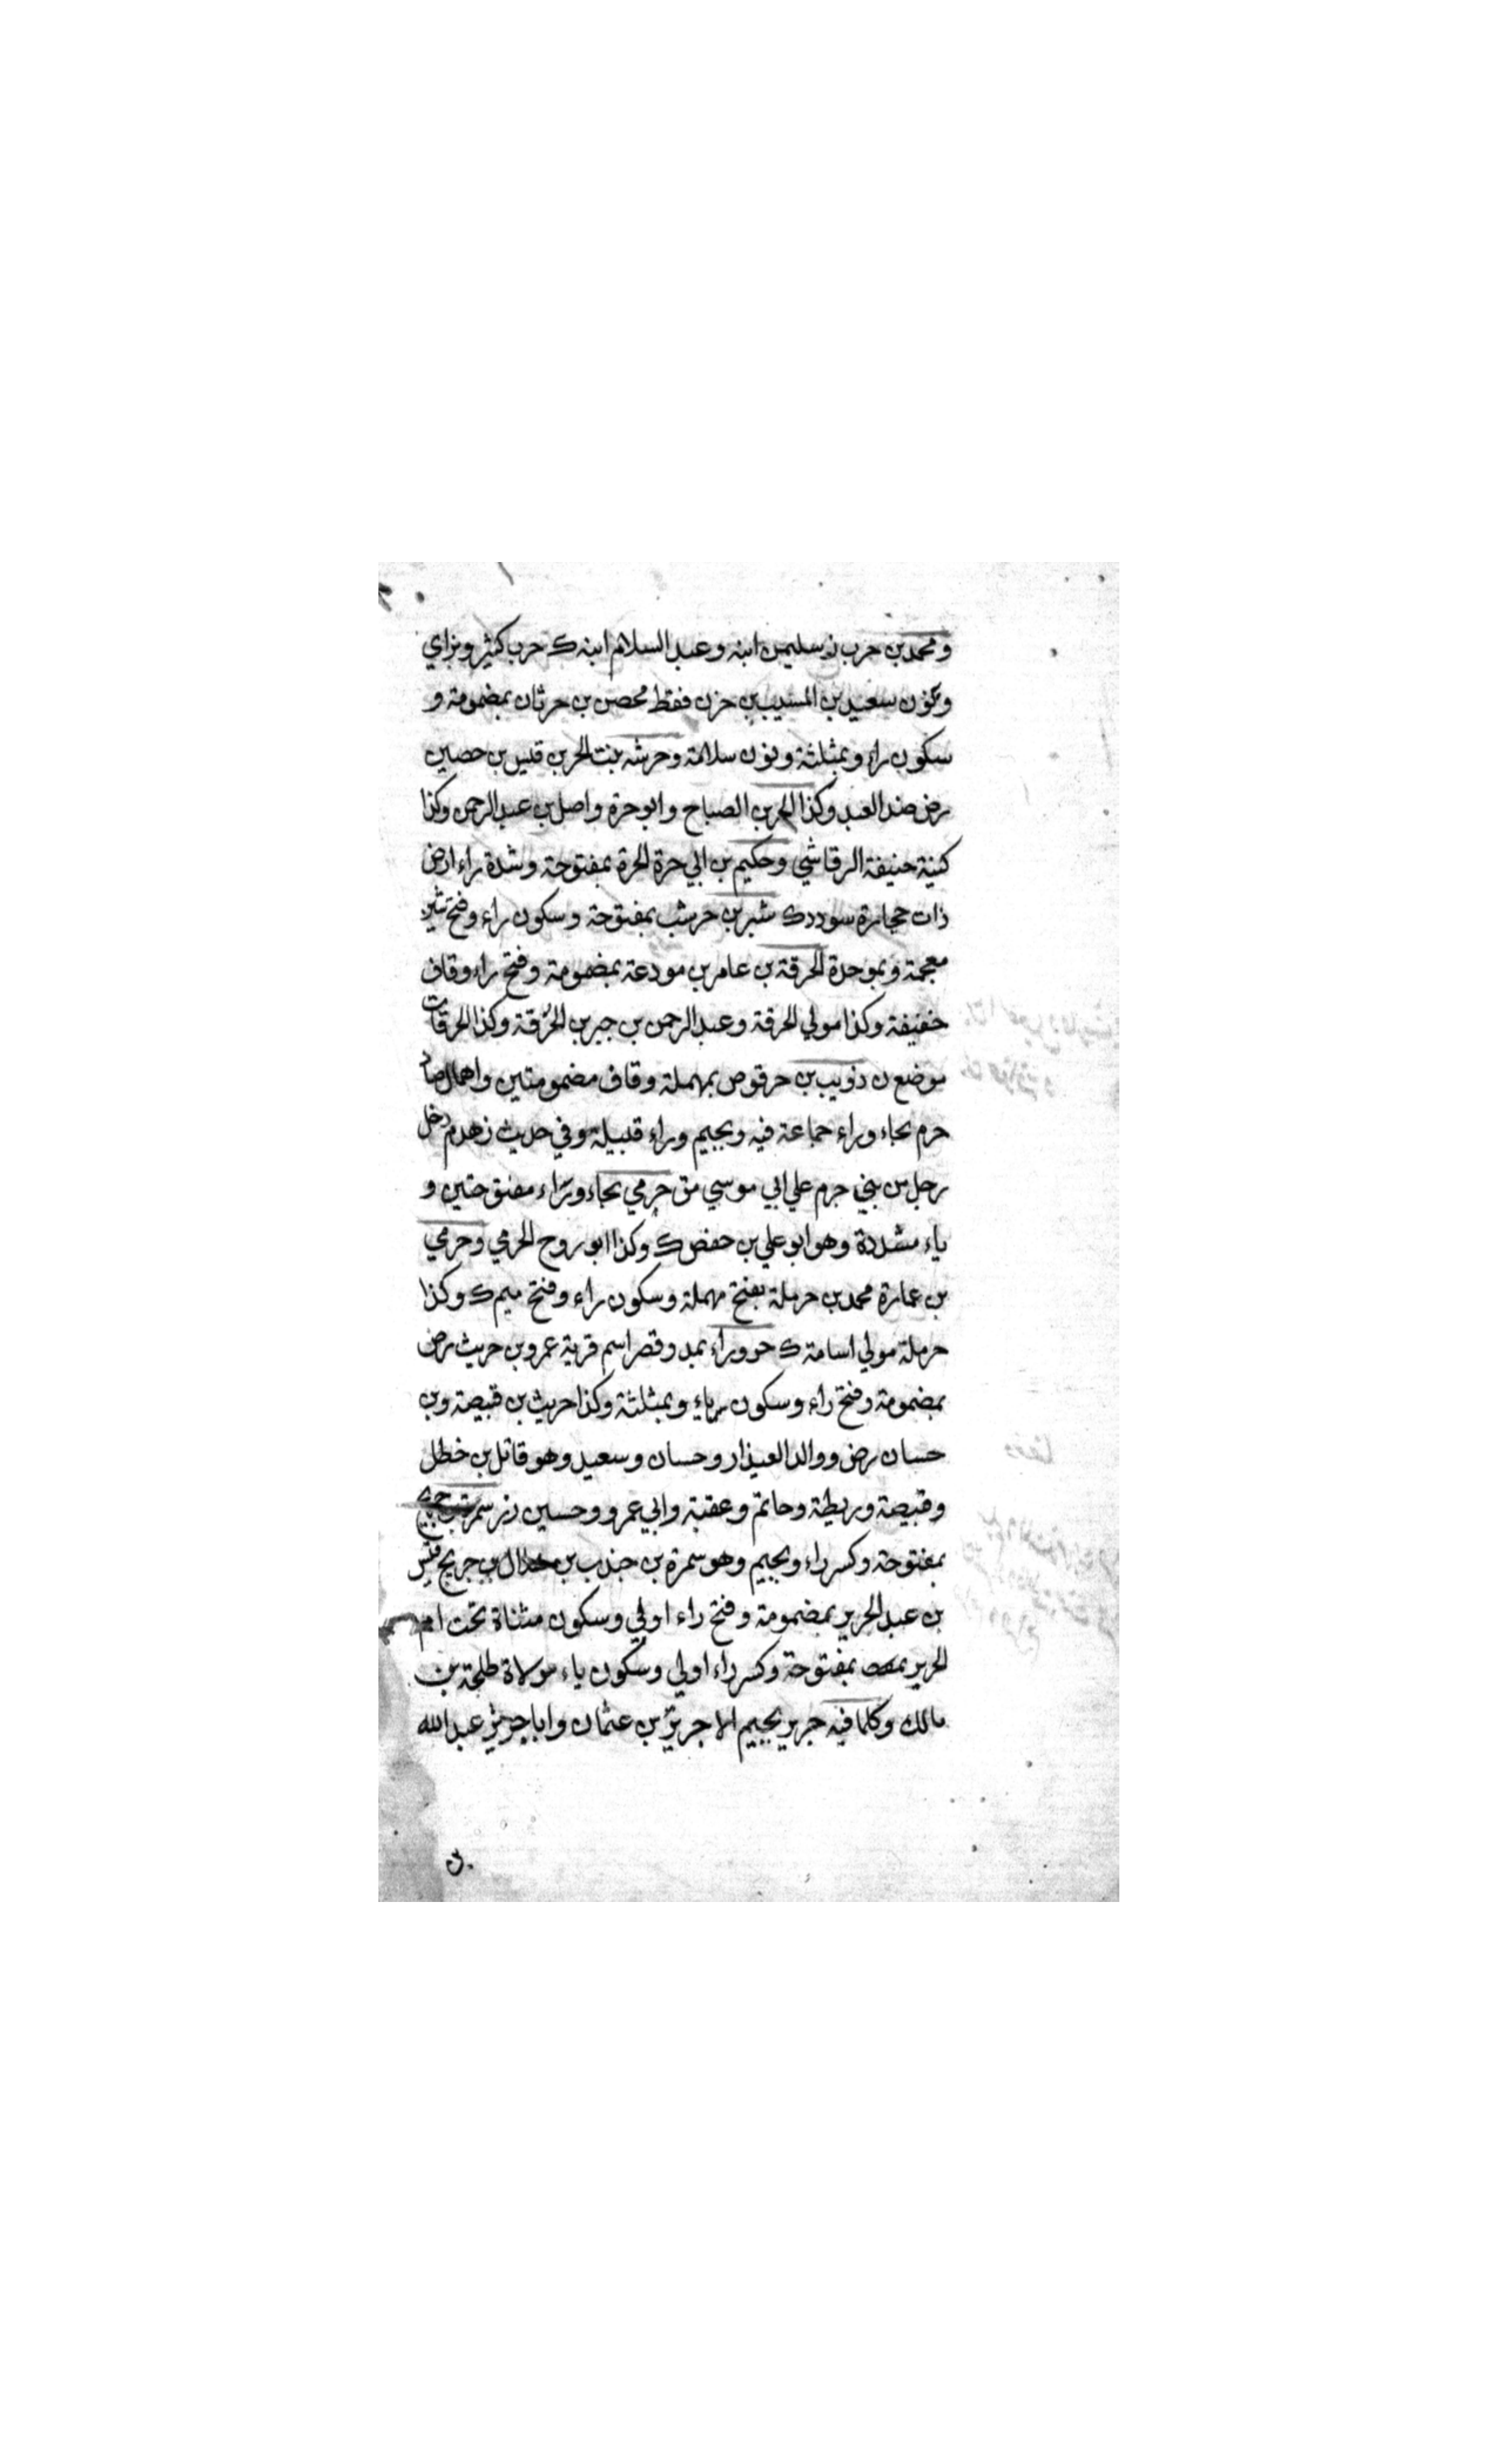 ومحمد بن حرب نو سليمن ابنه وعبد السلام ابنه ك حرب كثير وبزاي
وبنون سعيد بن المسيب بن حزن فقط محصن بن حرثان بمضمومة و
سكون راء وبمثلثة ونون سلامة وحرشه بنت الحر بن قيس بن حصين
رض ضد العبد وكذا الحر بن الصباح وابو حرة واصل بن عبد الرحمن وكذا
كنية حنيفة الرقاشي وحكيم بن ابي حرة الحرة بمفتوحة وشدة راء ارض
ذات حجارة سود دك شبر بن حرشب بمفتوحة وسكون راء وفتح شين
معجمة وبموحدة الحرقة بن عامر بن مودعة بمضمومة وفتح راء وقاف
خفيفة وكذا مولي الحرقة وعبد الرحمن بن جبر بن الحرقة وكذا الحرقات
موضع ن ذويب بن حرقوص بمهملة وقاف مضمومتين واهمال صاد
حرم بحاء وراء جماعة فيه وبجيم وراء قبيلة وفي حديث زهدم دخل
رجل من بني جرم علي ابي موسي مق حرمي بحاء وراء مفتوحتين و
ياء مشددة وهو ابو علي بن حفص ك وكذا ابو روح الحرمي وحرمي
بن عمارة محمد بن حرملة بفتح مهملة وسكون راء وفتح ميم ك وكذا
حرملة مولي اسامة ك حروراء بمد وقصر اسم قرية عمرو بن حريث رض
بمضمومة وفتح راء وسكون ياء وبمثلثة وكذا حريث بن قبيصة وبن
حسان رض ووالد العيذار وحسان وسعيد وهو قاتل بن خطل
وقبيصة وربطة وحاتم وعقبة وابي عمرو وحسين نر سمرة بن حريج
بمفتوحة وكسر راء وبجيم وهو سمرة بن جندب بن هلال بن حريج قيس
بن عبد الحرير بمضمومة وفتح راء اولي وسكون مثناة تحت ام
الحرير بمفتوحة وكسر راء اولي وسكون ياء مولاة طلحة بن
مالك وكلما فيه جرير بجيم الا حريز بن عثمان وابا حريز عبد الله